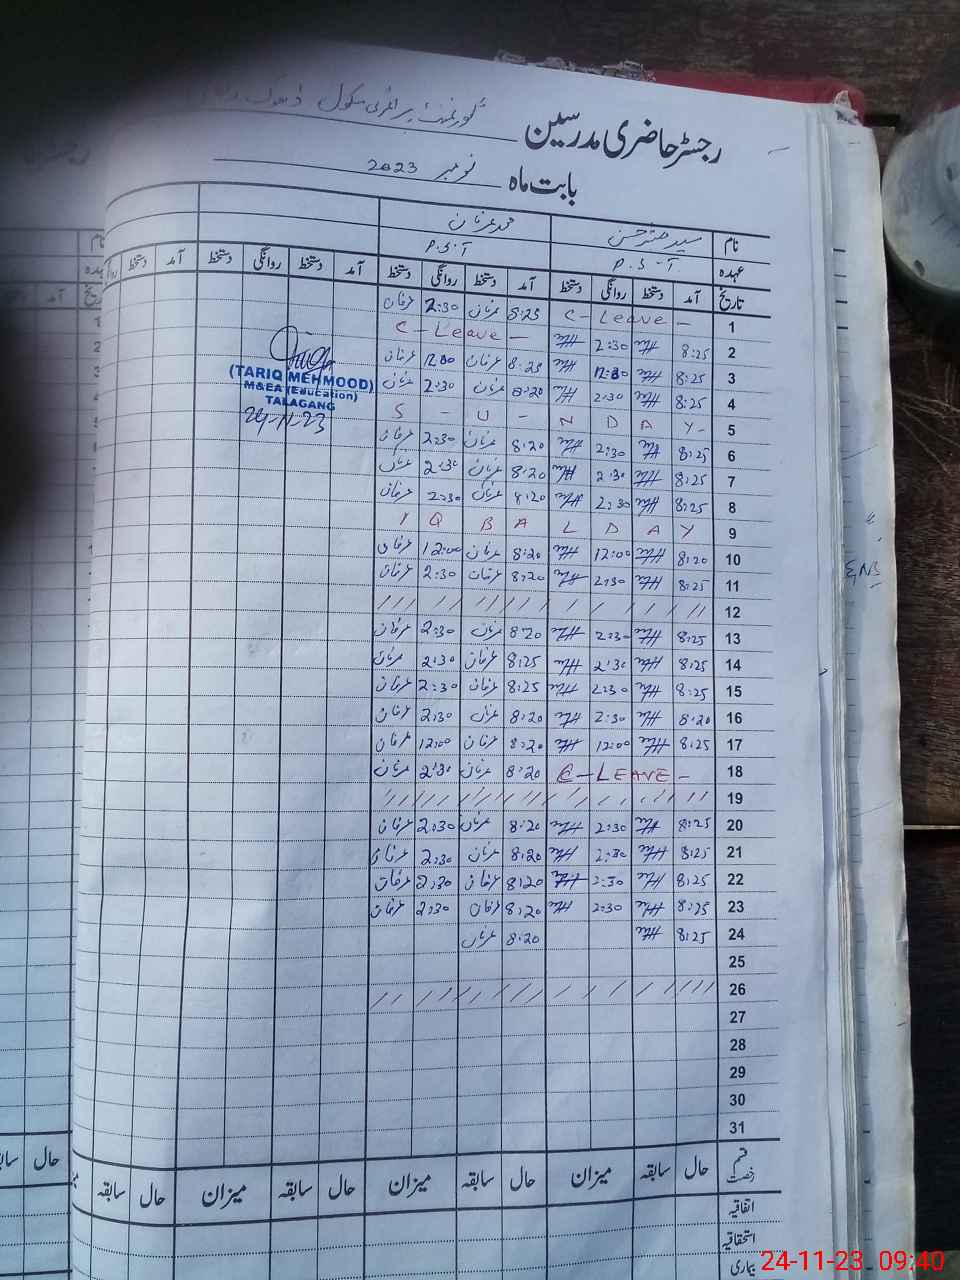 گورنمنٹ پرائمری سکول ڈھوک
رجسٹر حاضری مدرسین
بابت ماہ نومبر 2023
نام سید حسن محمد عرفان
عہدہ P.S.T P.S.T
تاریخ آمد دستخط روانگی دستخط آمد دستخط روانگی دستخط آمد دستخط روانگی دستخط آمد دستخط
1 C-Leave- 8:25 عرفان 2:30 عرفان
2 8:25 2:30 C-Leave-
3 8:25 12:00 8:25 عرفان 12:00 عرفان
4 8:25 2:30 8:20 عرفان 2:30 عرفان
5 S-U-NDAY-
6 8:25 2:30 8:20 عرفان 2:30 عرفان
7 8:25 2:30 8:20 عرفان 2:30 عرفان
8 8:25 2:30 8:20 عرفان 2:30 عرفان
9 IQBAL DAY
10 8:20 12:00 8:20 عرفان 12:00 عرفان
11 8:25 2:30 8:20 عرفان 2:30 عرفان
12
13 8:25 2:30 8:20 عرفان 2:30 عرفان
14 8:25 2:30 8:25 عرفان 2:30 عرفان
15 8:25 2:30 8:25 عرفان 2:30 عرفان
16 8:20 2:30 8:20 عرفان 2:30 عرفان
17 8:25 12:00 8:20 عرفان 12:00 عرفان
18 C-LEAVE- 8:20 عرفان 2:30 عرفان
19
20 8:25 2:30 8:20 عرفان 2:30 عرفان
21 8:25 2:30 8:20 عرفان 2:30 عرفان
22 8:25 2:30 8:20 عرفان 2:30 عرفان
23 8:25 2:30 8:20 عرفان 2:30 عرفان
24 8:25 8:20 عرفان
25
26
27
28
29
30
31
(TARIQ MEHMOOD)
M&EA (Education)
TALAGANG
24-11-23
قسم رخصت حال سابقہ میزان حال سابقہ میزان حال سابقہ میزان حال سابقہ
اتفاقیہ
استحقاقیہ
بیماری
24-11-23 09:40